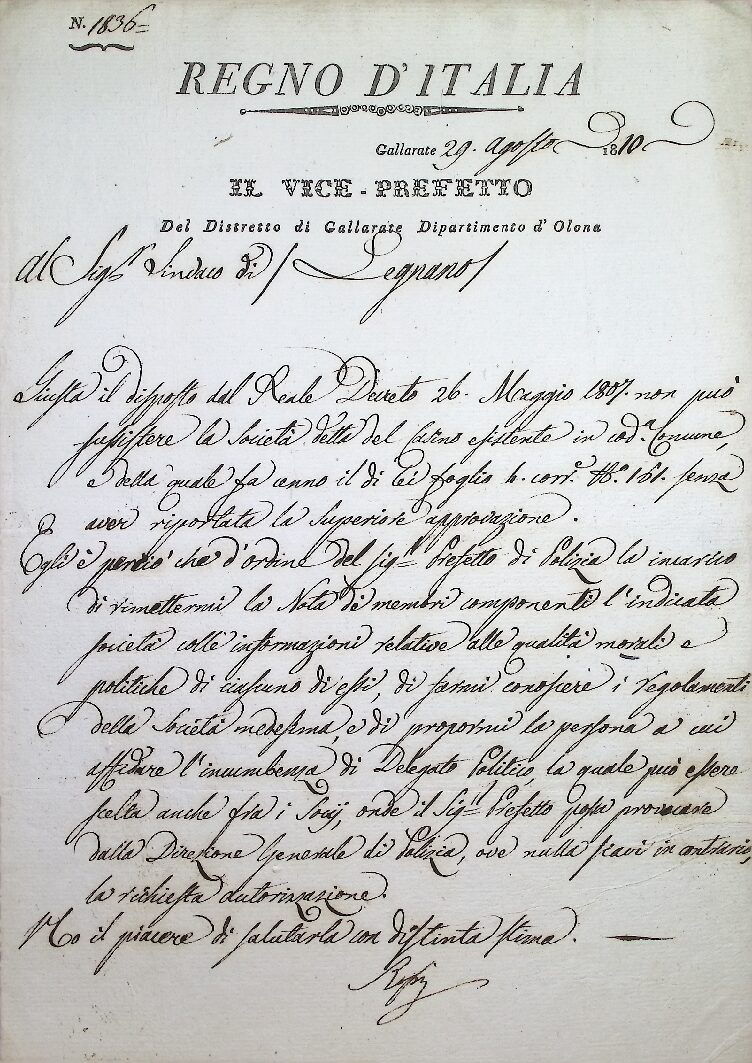 N. 1836=
REGNO D'ITALIA
Gallarate 29. Agosto 1810
IL VICE-PREFETTO
Del Distretto di Gallarate Dipartimento d'Olona
Al Sig.r Sindaco di / Legnano /
Giusta il disposto dal Reale Decreto 26. Maggio 1807. non può
sussistere la Società detta del Casino esistente in cod.a Comune,
e della quale fa cenno il di Lei foglio 4. corr.e N.o 161. senza
aver riportata la Superiore approvazione.
Egli è perciò che d'ordine del Sig.r Prefetto di Polizia la incarico
di rimettermi la Nota dei memori componenti l'indicata
società colle informazioni relative alle qualità morali e
politiche di ciascuno di essi, di farmi conoscere i regolamenti
della Società medesima, e di propormi la persona a cui
affidare l'incumbenza di Delegato Politico, la quale può essere
scelta anche fra i Socij, onde il Sig.r Prefetto possa provocare
dalla Direzione Generale di Polizia, ove nulla siavi in contrario,
la richiesta autorizzazione.
Ho il piacere di salutarla con distinta stima.